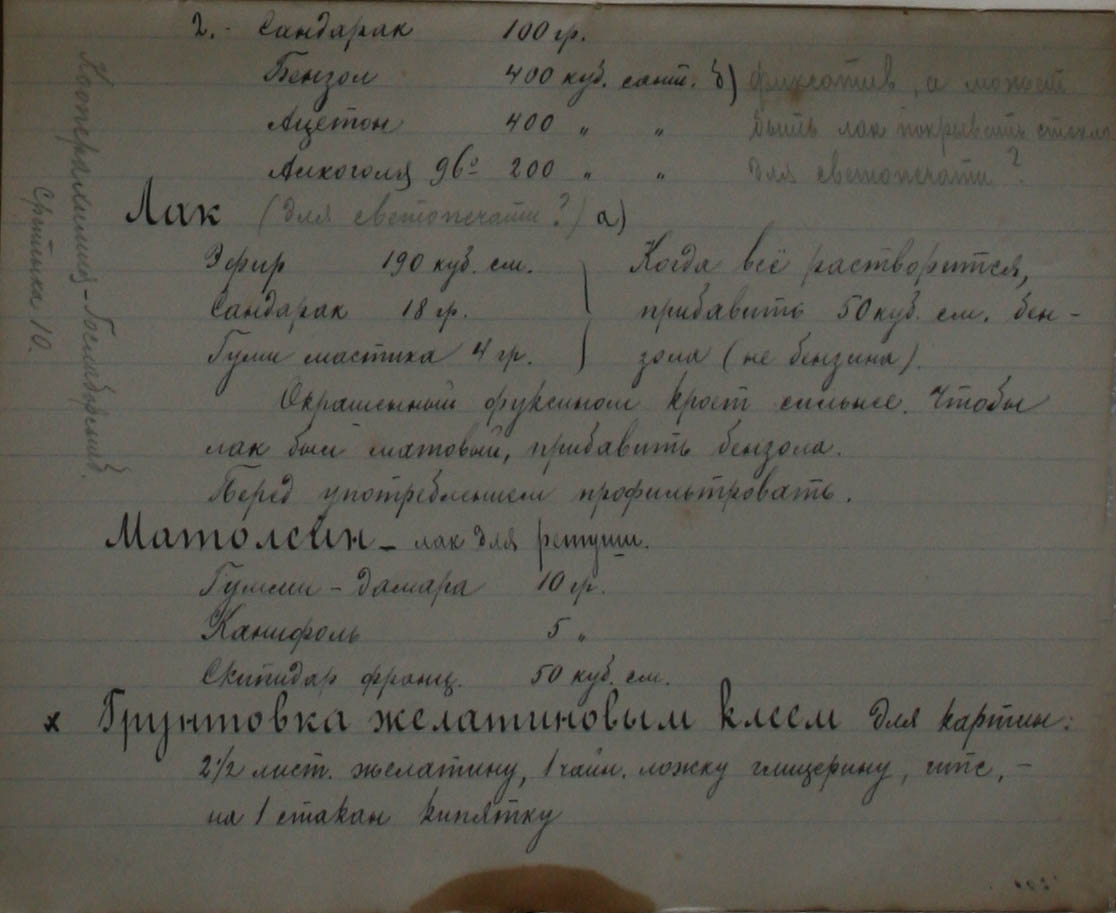 2.- Сандарак 100 гр.
Бензол 400 куб. сант. б) фиксатив, а может
Ацетон 400 „ „ быть лак покрывать стекло
Алкоголя 96° 200 „ „ для светопечати?
Лак (для светопечати?) а)
Эфир 190 куб. см. } Когда всё растворится,
Сандарак 18 гр. прибавить 50 куб. см. бен-
Гуми мастика 4 гр. зола (не бензина).
Окрашенный фуксином кроет сильнее. Чтобы
лак был матовый, прибавить бензола.
Перед употреблением профильтровать.
Матолеин - лак для ретуши.
Гумми - дамара 10 гр.
Канифоль 5 „
Скипидар франц. 50 куб. см.
х Грунтовка желатиновым клеем для картин:
2 1/2 лист. желатину, 1 чайн. ложку глицерину, -
на 1 стакан кипятку
Сретенка 10.